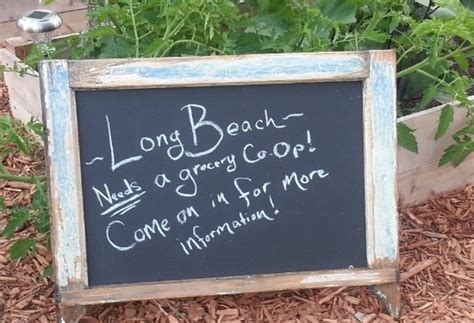 ~Long Beach~
Needs a grocery Co-Op!
Come on in for more
information!